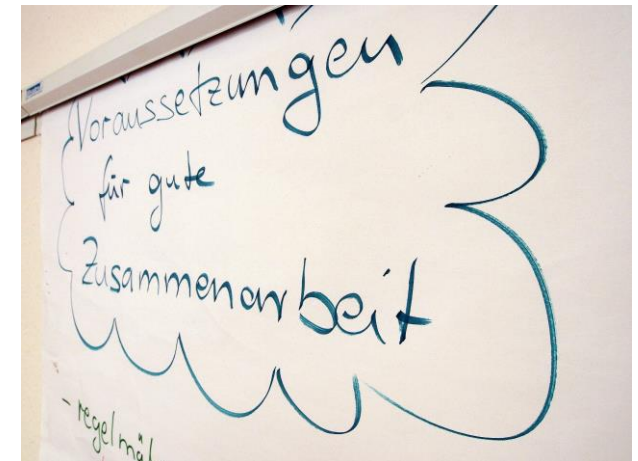 Voraussetzungen
für gute
Zusammenarbeit
- regelmäß